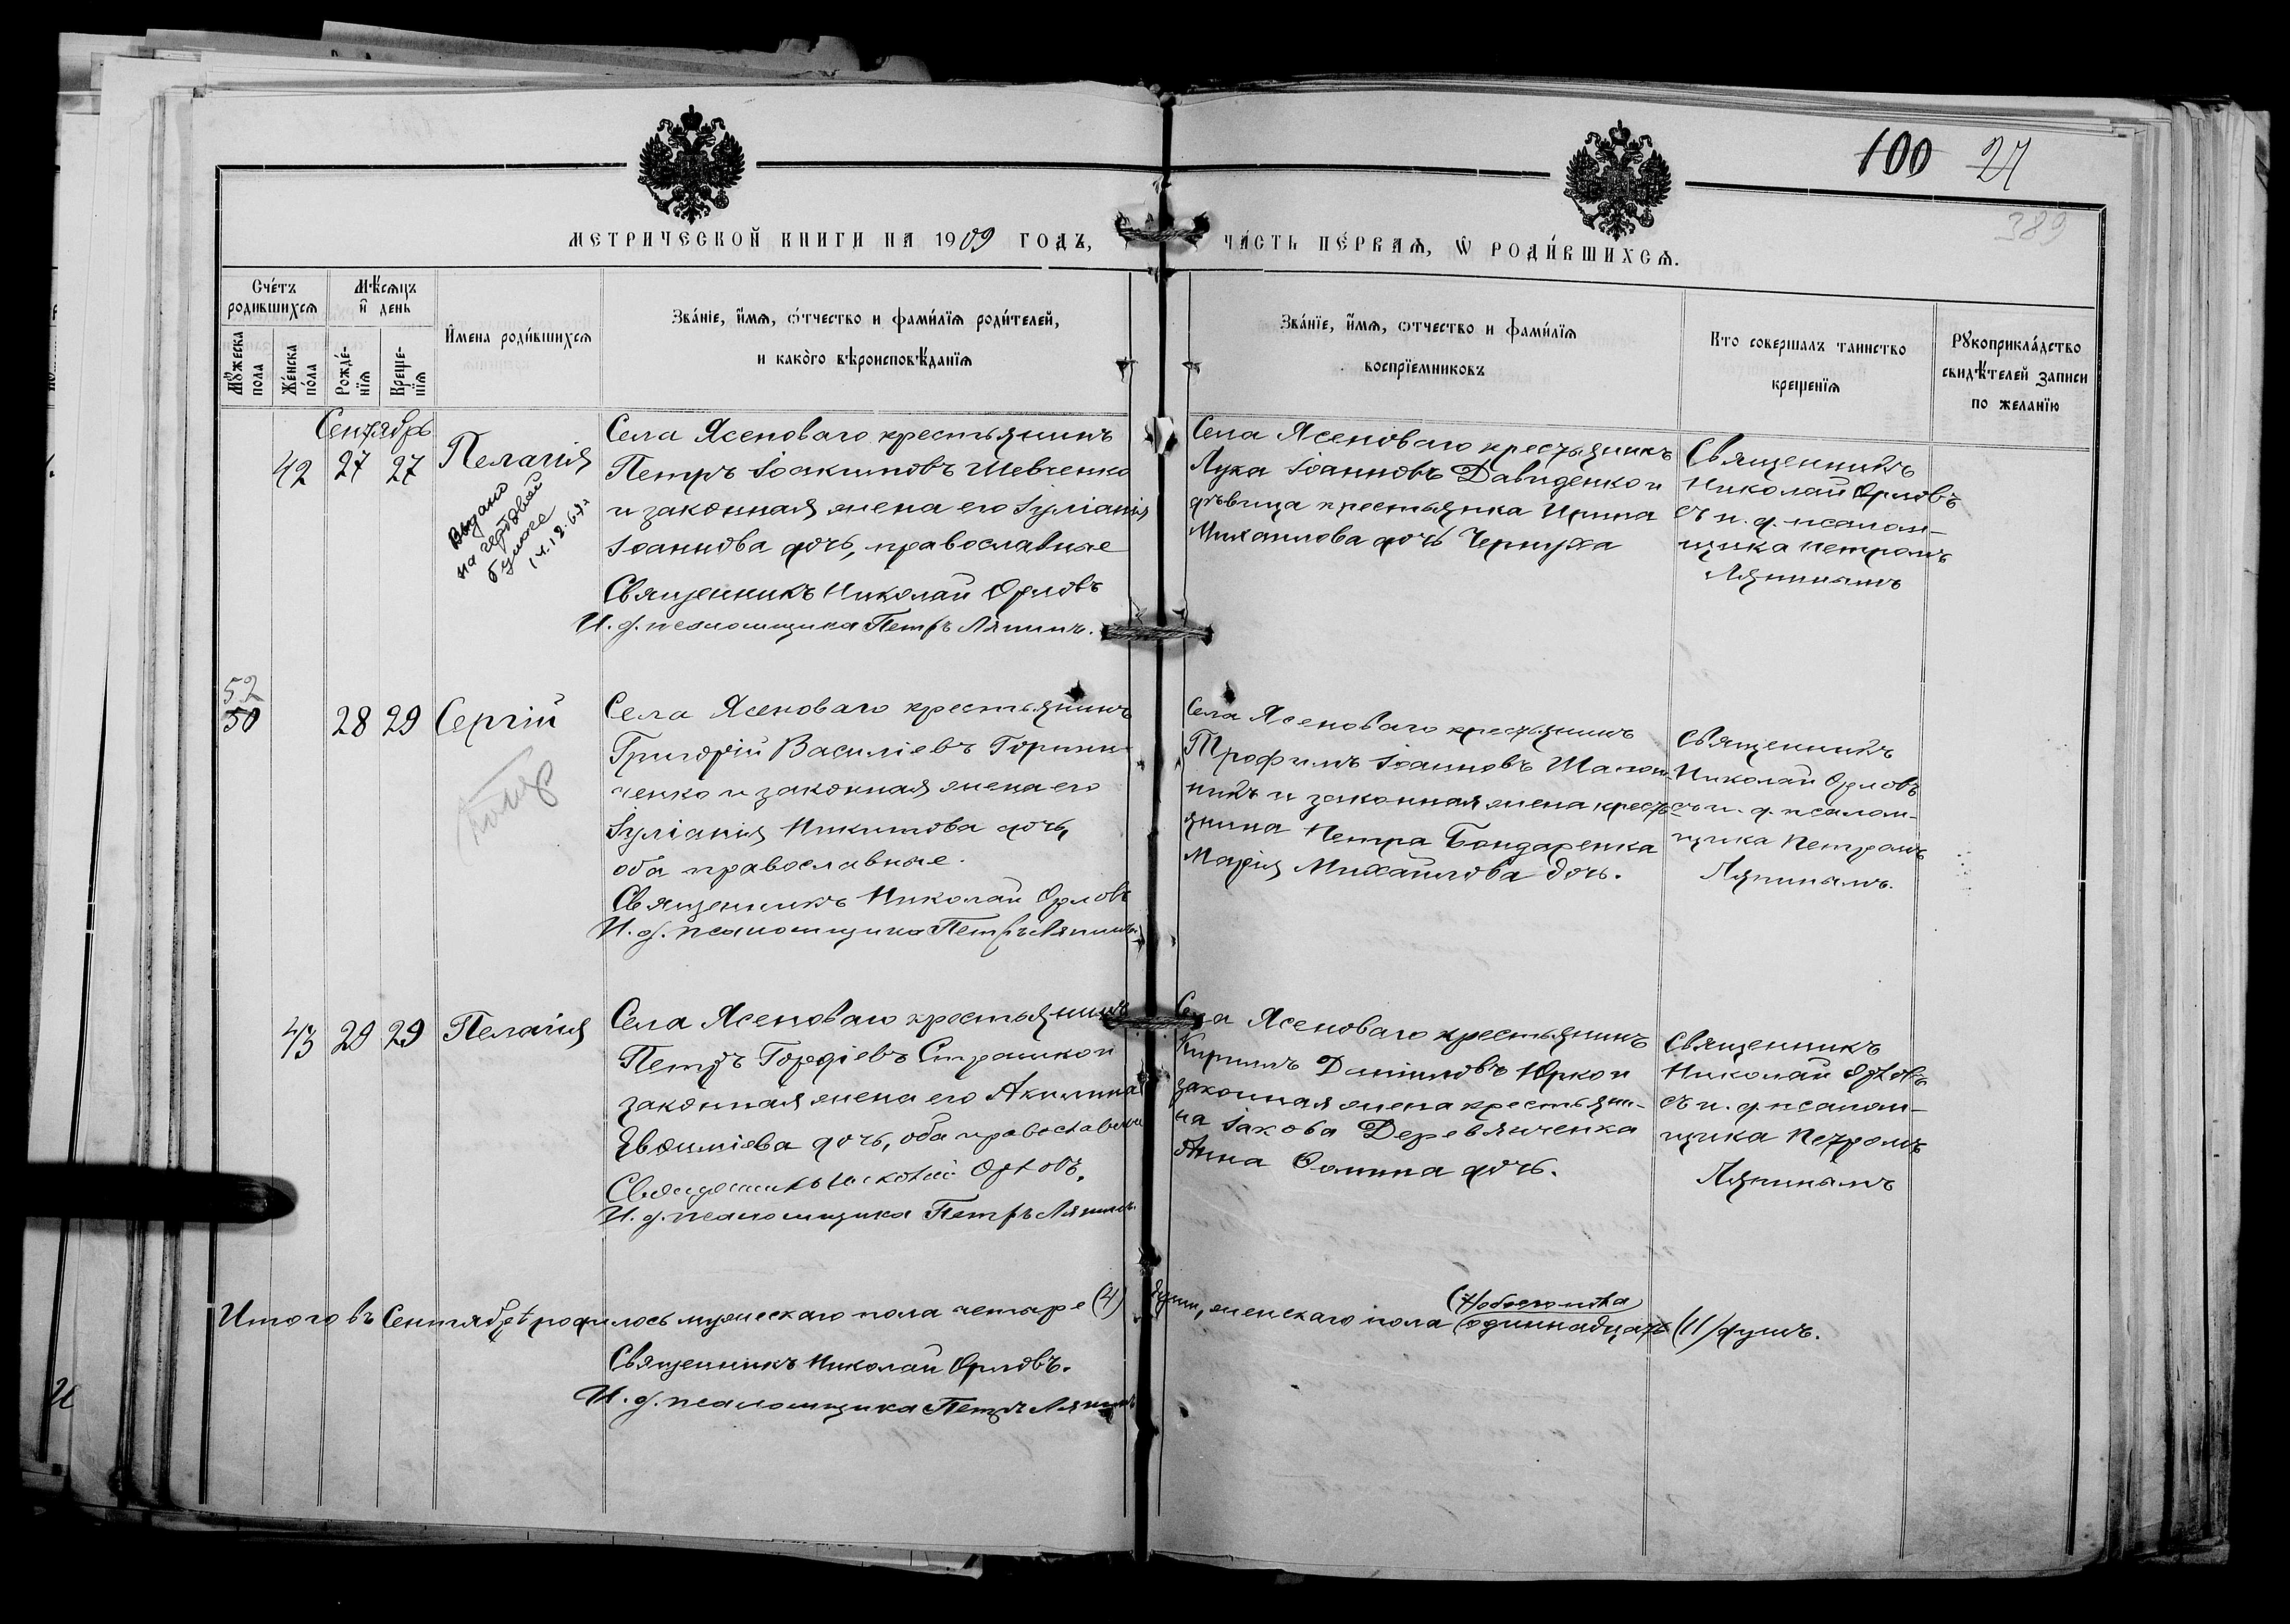 100 27
389
МЕТРИЧЕСКОЙ КНИГИ НА 1909 ГОДЪ,
ЧА́СТЬ ПЕ́РВАѦ, Ѡ҃ РОДИ́ВШИХСѦ.
Сче́тъ родившихсѧ
Мѣ́сѧцъ и҆ день
Мꙋ́жеска пола
Же́нска по́ла
Рожде́-нїѧ
Креще-нїѧ
И҆мена роди́вшихсѧ
Зва́нїе, и҆́мѧ, ѻ҆́тчество и фами́лїѧ роди́телей,
и како́го вѣроисповѣ́данїѧ
Зва́нїе, и҆́мѧ, ѻтчество и фами́лїѧ
воспрїемниковъ
Кто совершалъ таинство
крещенїѧ
Рꙋкоприкла́дство
свидѣ́телей записи
по желанїю
Сентябрь
42 27 27 Пелагія
Выдано
на гербовой
бумаге
Села Ясеноваго крестьянинъ
Петръ Іоакимовъ Шевченко
и законная жена его Іуліанія
Іоаннова дочь, православные
Священникъ Николай Орловъ
И. д. псаломщика Петръ Ляпинъ.
Села Ясеноваго крестьянинъ
Лука Іоанновъ Давиденко и
дѣвица крестьянка Ирина
Михаилова дочь Чернуха
Священникъ
Николай Орловъ
съ и. д. псалом-
щика Петромъ
Ляпинымъ
52
50 28 29 Сергій
Села Ясеноваго крестьянинъ
Григорій Василіевъ Горпин-
ченко и законная жена его
Іуліанія Никитова дочь,
оба православные.
Священникъ Николай Орловъ
И. д. псаломщика Петръ Ляпинъ.
Села Ясеноваго крестьянинъ
Трофимъ Іоанновъ Шапош-
никъ и законная жена кресть-
янина Петра Бондаренка
Марія Михаилова дочь.
Священникъ
Николай Орловъ
съ и. д. псалом-
щика Петромъ
Ляпинымъ.
43 29 29 Пелагія
Села Ясеноваго крестьянинъ
Петръ Гордіевъ Страшко и
законная жена его Акилина
Евѳиміева дочь, оба православные
Священникъ Николай Орловъ.
И. д. псаломщика Петръ Ляпинъ.
Села Ясеноваго крестьянинъ
Кириллъ Даніиловъ Юрко и
законная жена крестьяни-
на Іакова Деревянченка
Анна Ѳомина дочь.
Священникъ
Николай Орловъ
съ и. д. псалом-
щика Петромъ
Ляпинымъ
Итого въ Сентябрѣ родилось мужескаго пола четыре (4) души, женскаго пола одиннадцать (11) душъ.
Священникъ Николай Орловъ.
И. д. псаломщика Петръ Ляпинъ